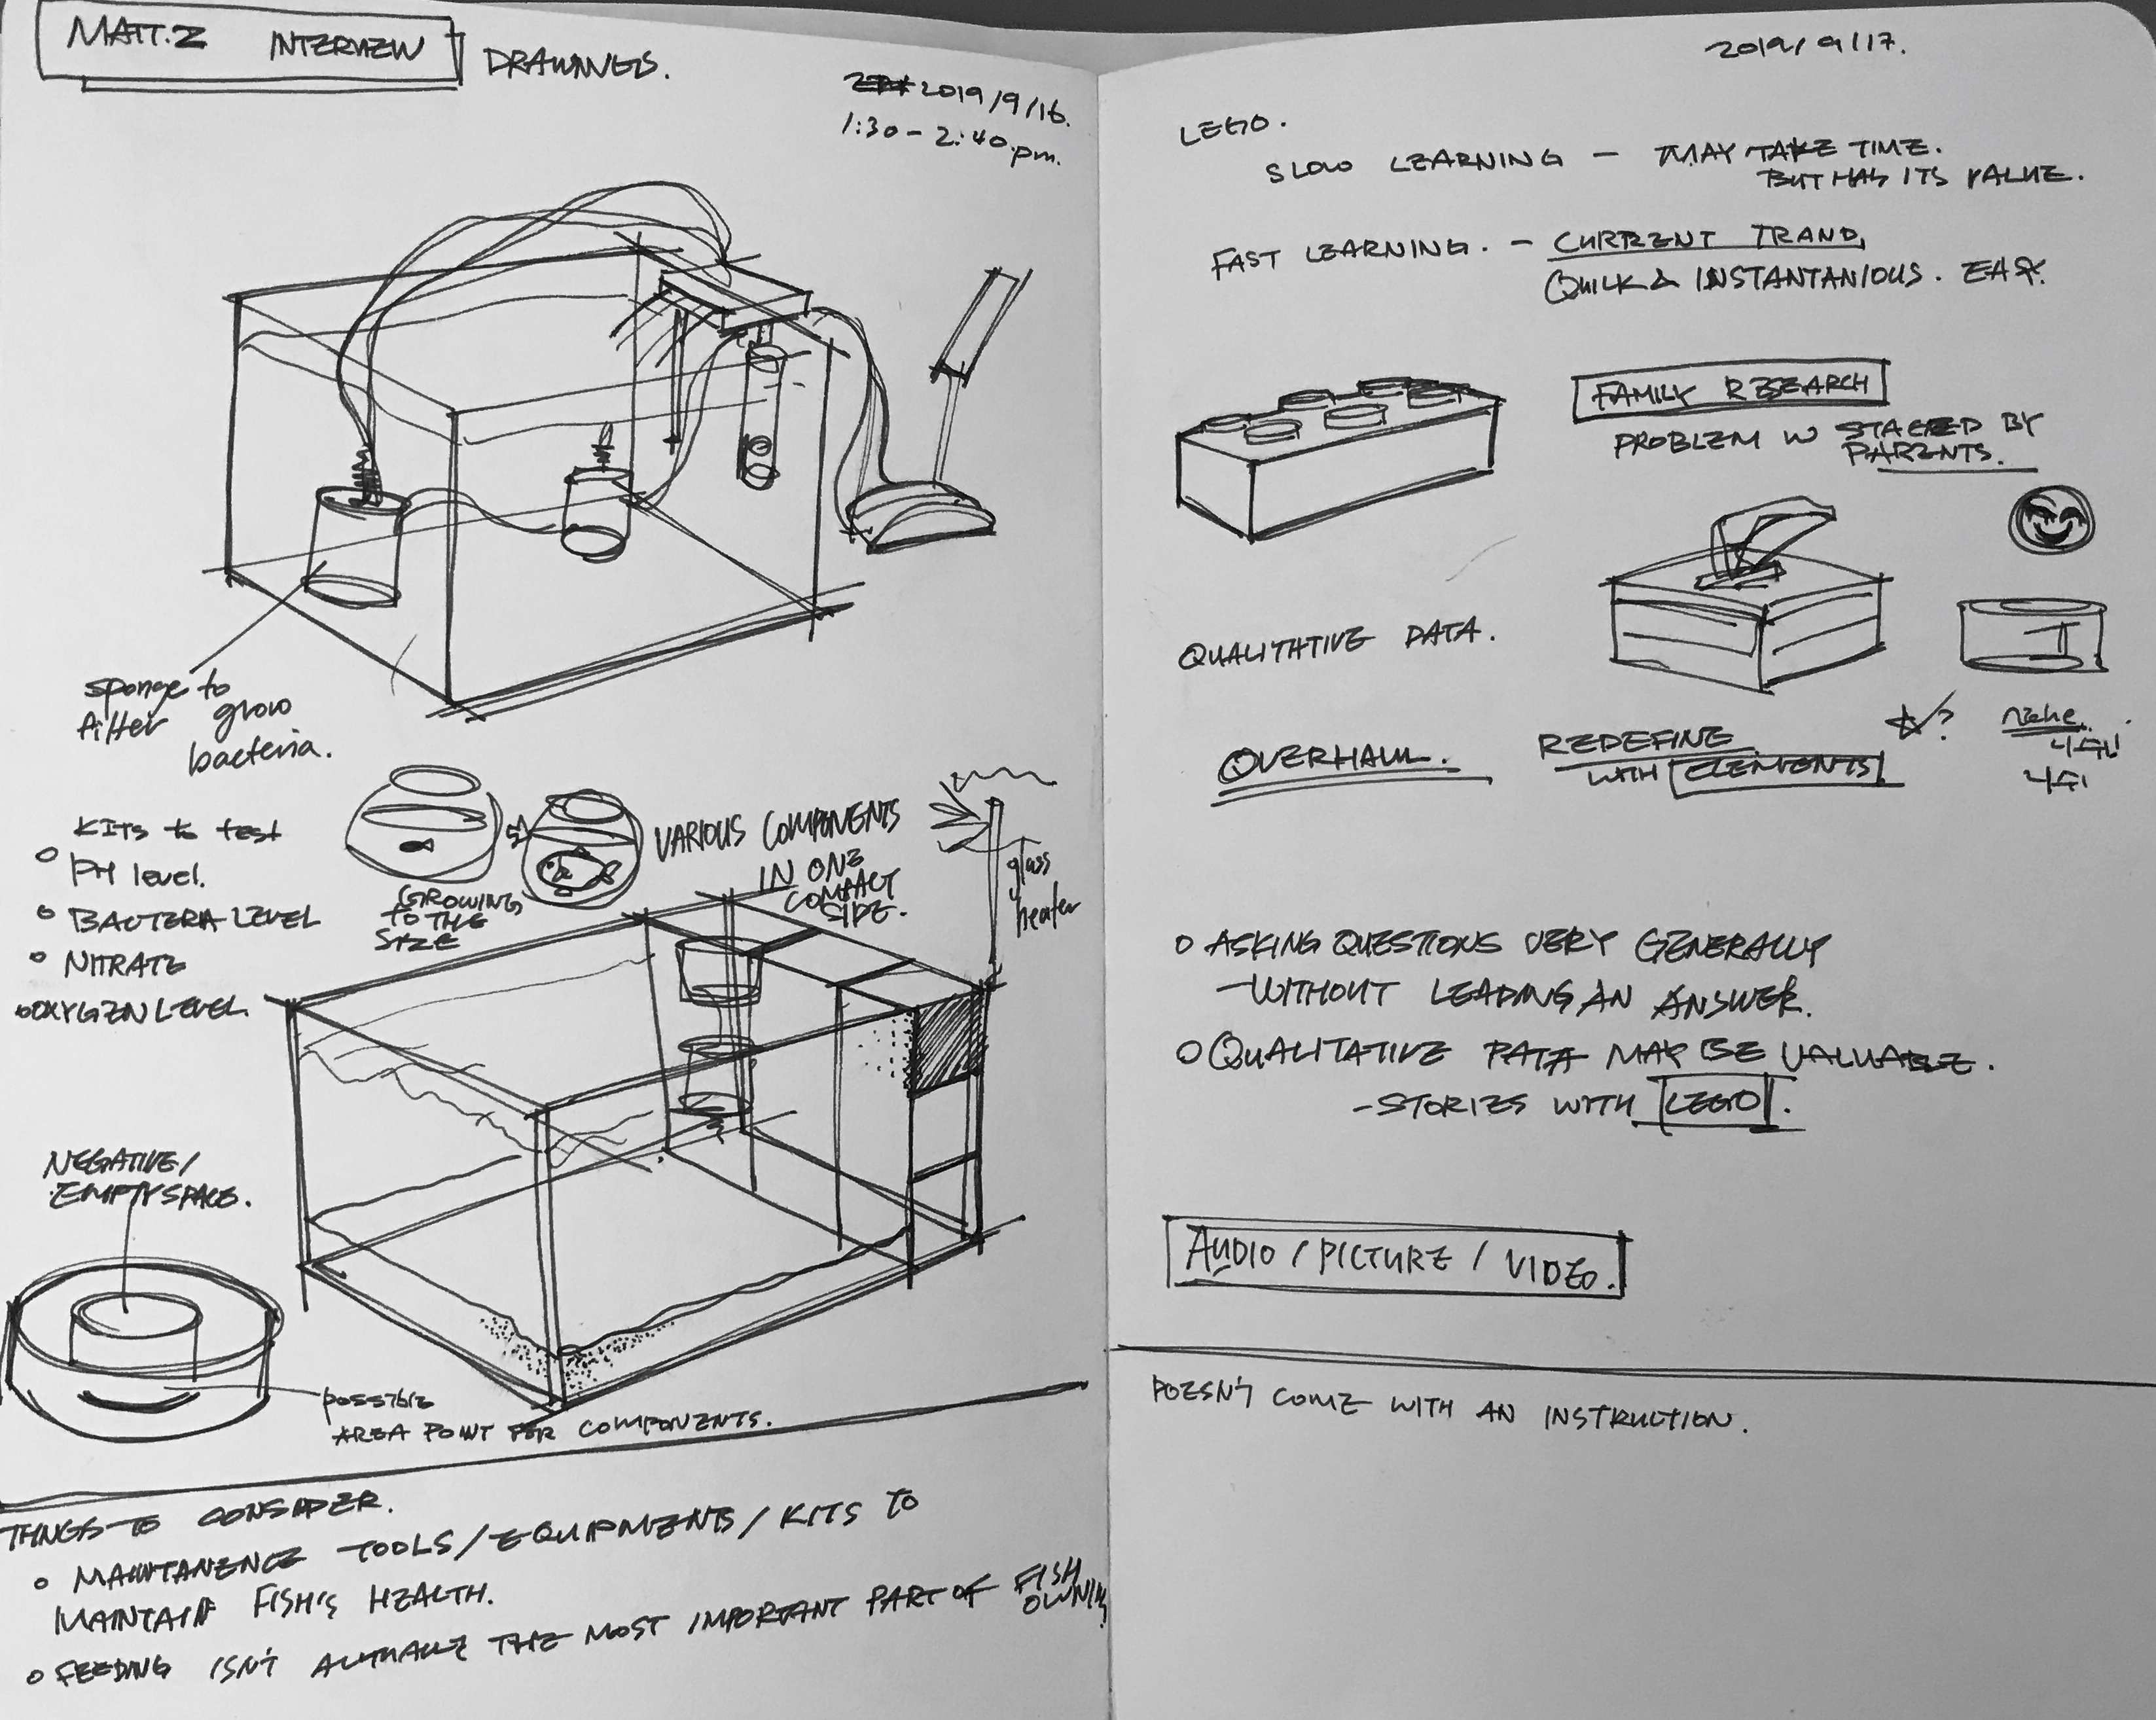 MATT.Z INTERVIEW DRAWINGS.
2019/9/16.
1:30 - 2:40 pm.
sponge to
filter grow
bacteria.
KITS to test
PH level.
BACTERIA LEVEL
NITRATE
OXYGEN LEVEL
GROWING
TO THE
SIZE
VARIOUS COMPONENTS
IN ONE
COMPACT
SIDE.
glass
heater
NEGATIVE/
EMPTY SPACE.
possible
AREA POINT FOR COMPONENTS.
THINGS TO CONSIDER.
MAINTANENCE TOOLS/EQUIPMENTS/KITS TO
MAINTAIN FISH'S HEALTH.
FEEDING ISN'T THE MOST IMPORTANT PART OF FISH
OWNING
2019/9/17.
LEGO.
SLOW LEARNING - MAY TAKE TIME.
BUT HAS ITS VALUE.
FAST LEARNING. - CURRENT TRAND,
QUICK & INSTANTANIOUS. EASY.
FAMILY RESEARCH
PROBLEM W STACKED BY
PARENTS.
QUALITATIVE DATA.
OVERHAUL.
REDEFINE
WITH ELEMENTS
?
ASKING QUESTIONS VERY GENERALLY
- WITHOUT LEADING AN ANSWER.
QUALITATIVE DATA MAY BE VALUABLE.
- STORIES WITH LEGO.
AUDIO / PICTURE / VIDEO.
DOESN'T COME WITH AN INSTRUCTION.